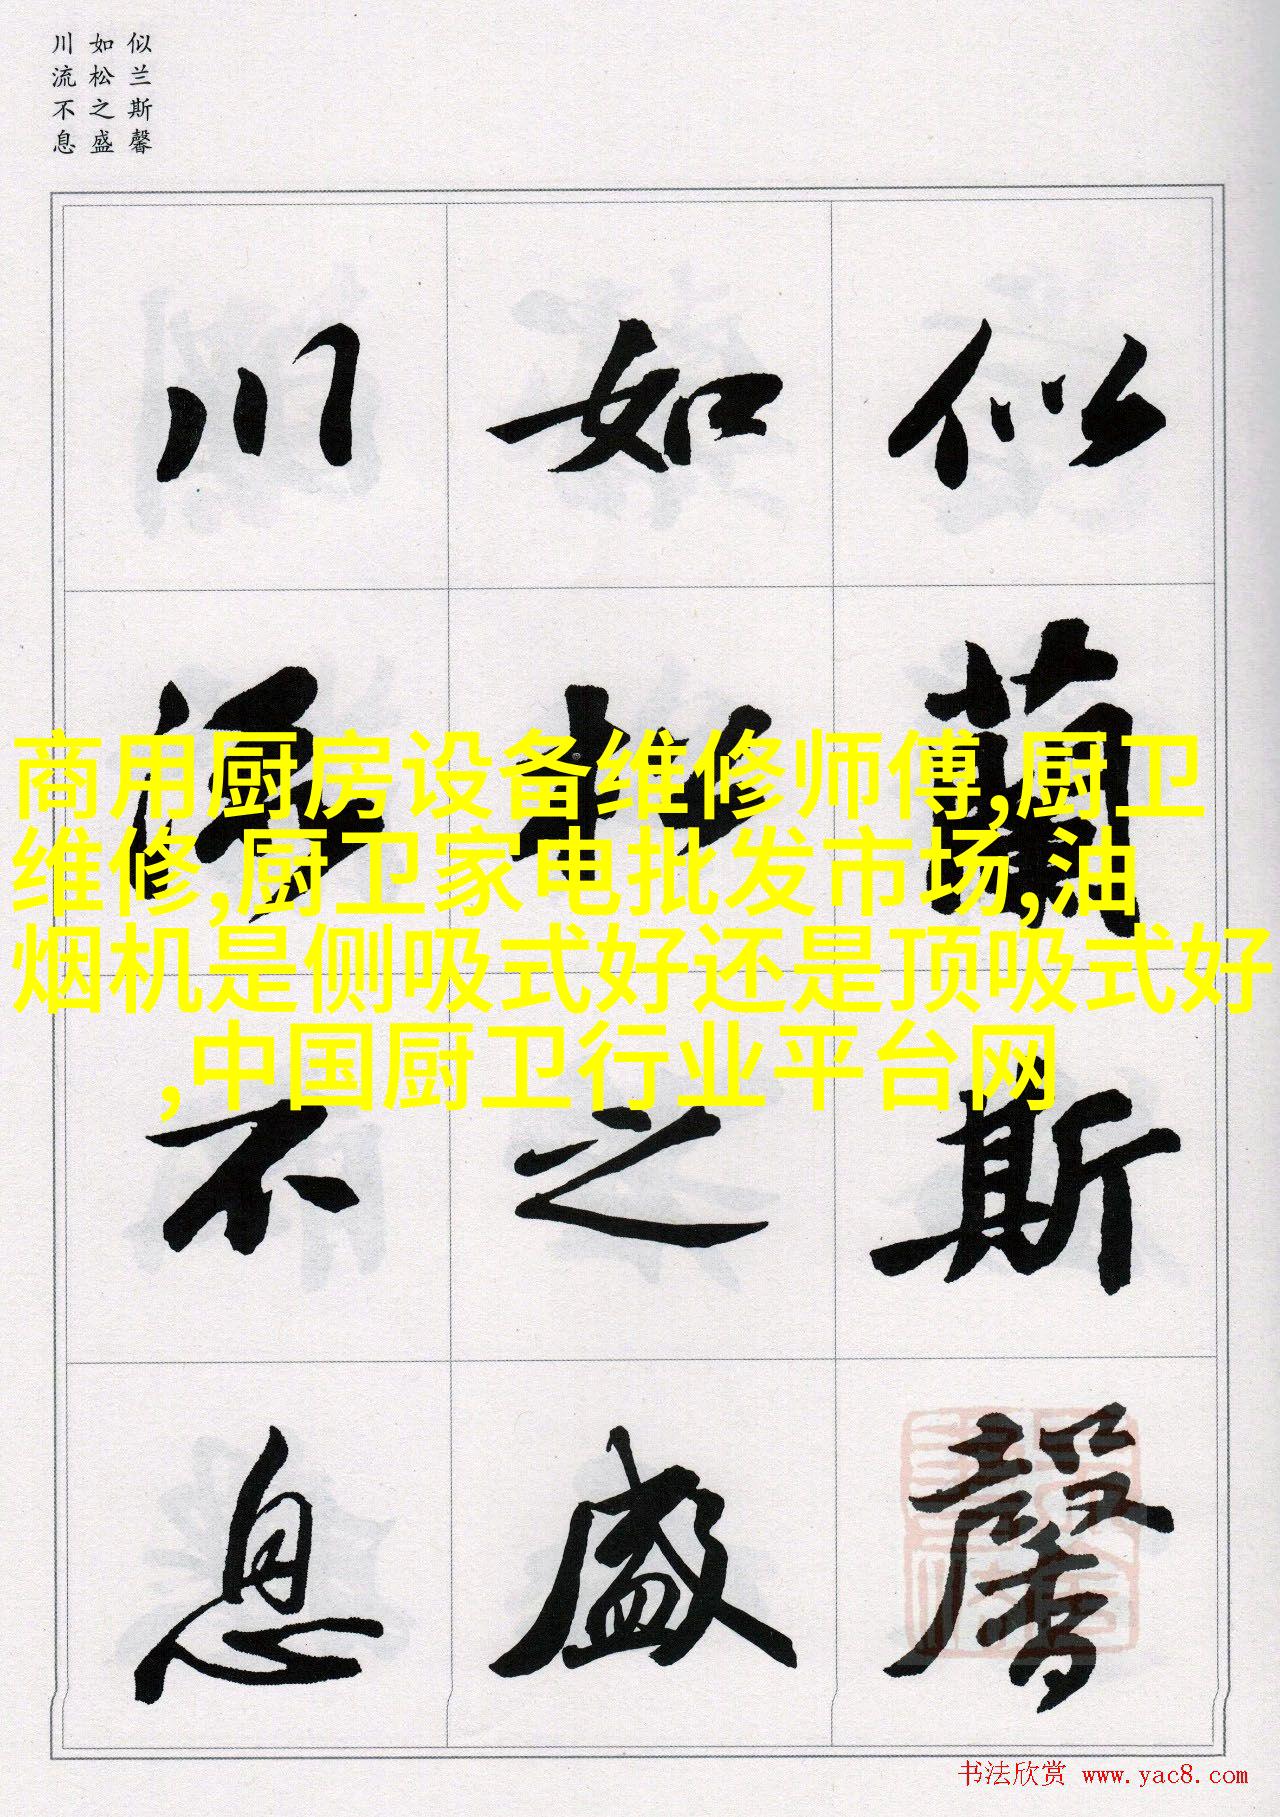 似兰斯馨
如松之盛
川流不息
似蘭斯馨
如松之盛
川流不息
商用厨房设备维修师傅,厨卫
维修,厨卫家电批发市场,油
烟机是侧吸式好还是顶吸式好
,中国厨卫行业平台网
书法欣赏 www.yac8.com